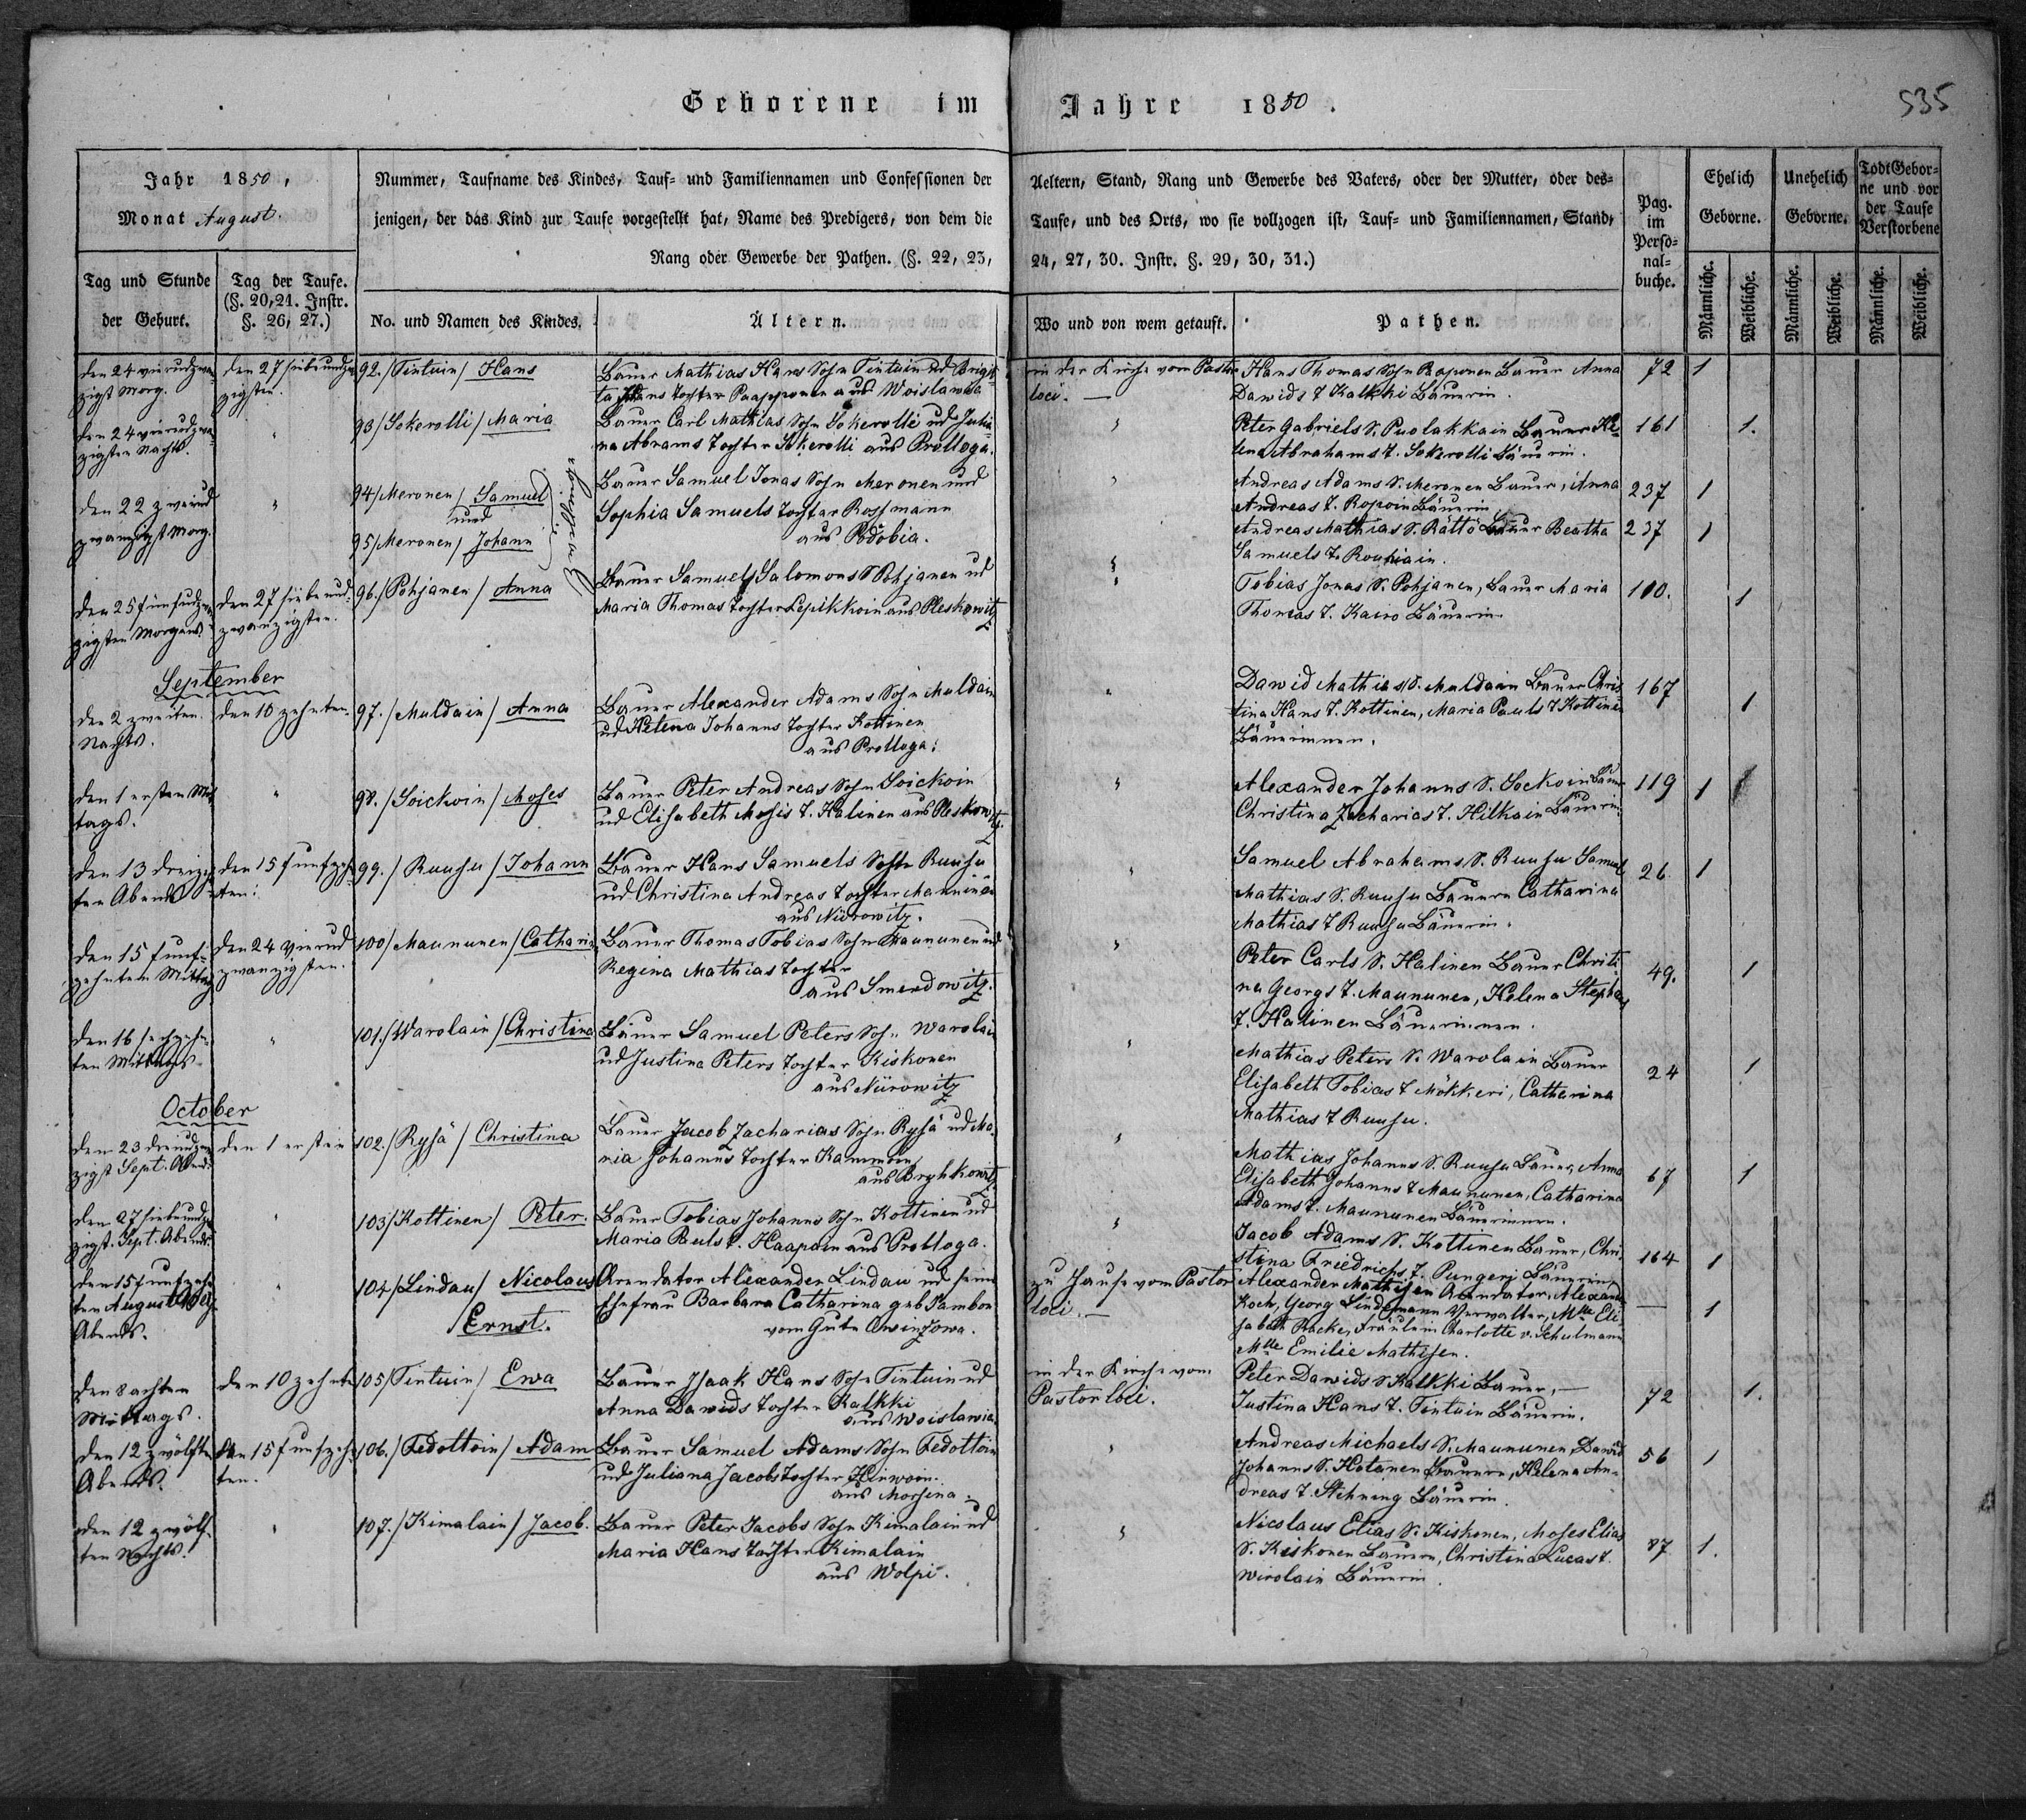 Geborene im Jahre 1850.
535
Jahr 1850,
Monat August.
Nummer, Taufname des Kindes, Tauf- und Familiennamen und Confessionen der Aeltern, Stand, Rang und Gewerbe des Vaters, oder der Mutter, oder des-
jenigen, der das Kind zur Taufe vorgestellt hat, Name des Predigers, von dem die Taufe, und des Orts, wo sie vollzogen ist, Tauf- und Familiennamen, Stand,
Rang oder Gewerbe der Pathen. (§. 22, 23, 24, 27, 30. Instr. §. 29, 30, 31.)
Pag. im Perso-nal-buche.
Ehelich Geborne.
Unehelich Geborne.
TodtGebor-ne und vor der Taufe Verstorbene
Tag und Stunde der Geburt.
Tag der Taufe. (§. 20, 21. Instr. §. 26, 27.)
No. und Namen des Kindes.
Ältern.
Wo und von wem getauft.
Pathen.
Männliche. Weibliche. Männliche. Weibliche. Männliche. Weibliche.
den 24 vierundzwan-
zigst Morg.
den 27 siebenundzwan-
zigsten.
92./Tintuin/ Hans
Bauer Mathias Hans Sohn Tintuin ud Brigit-
ta Hans Tochter Paapponen aus Woislawea
in der Kirche vom Pastor
loci. —
Hans Thomas Sohn Paaponen Bauer Anna
Dawids T Kalkki Bäuerin.
72 1
den 24 vierundzwan-
zigsten Nachts.
"
93/Sokerolli/ Maria
Bauer Carl Mathias Sohn Sokerolli ud Julia-
na Abrams Tochter Sokerolli aus Prolloga.
"
Peter Gabriels S. Puolakkain Bauer He-
lena Abrahams T. Sokerolli Bäuerin.
161 1.
den 22 zweiund
zwanzigst Morg.
"
94/Meronen/ Samuel
und
95/Meronen/ Johann
Zwillinge
Bauer Samuel Jonas Sohn Meronen und
Sophia Samuels Tochter Rossmann
aus Podobia.
"
Andreas Adams S. Meronen Bauer, Anna
Andreas T. Ropoin Bäuerin
237 1
Andreas Mathias S. Rättö Bauer Beatha
Samuels T. Routiain.
237 1
den 25 fünfundzwan-
zigsten Morgens.
den 27 siebenund-
zwanzigsten.
96./Pohjanen/ Anna
Bauer Samuel Salomons S Pohjanen ud
Maria Thomas Tochter Lepikkoin aus Pleskowitz
"
Tobias Jonas S. Pohjanen, Bauer Maria
Thomas T. Kairo Bäuerin
110. 1
September
den 2 zweiten
Nachts.
den 10 zehnten.
97./Muldain/ Anna
Bauer Alexander Adams Sohn Muldain
ud Helena Johanns Tochter Kottinen
aus Prolloga.
"
Dawid Mathias S. Muldain Bauer Chris-
tina Hans T. Kottinen, Maria Pauls T Kottinen
Bäuerinnen.
167 1
den 1 ersten Mit-
tags.
"
98./Soickoin/ Moses
Bauer Peter Andreas Sohn Soickoin
ud Elisabeth Mosis T. Halinen aus Pleskowitz.
"
Alexander Johanns S. Sockoin Bauer
Christina Zacharias T. Hilkain Bäuerin.
119 1
den 13 dreizehn-
ten Abends
den 15 funfzehn-
ten.
99./Ruusu/ Johann
Bauer Hans Samuels Sohn Ruusu
ud Christina Andreas Tochter Manninen
aus Nürowitz.
"
Samuel Abrahams S. Ruusu Samuel
Mathias S. Ruusu Bauern Catharina
Mathias T Ruusu Bäuerin.
26 1
den 15 funf-
zehnten Mittag
den 24 vierund
zwanzigsten.
100/Maununen/ Catharina
Bauer Thomas Tobias Sohn Maununen und
Regina Mathias Tochter
aus Smerdowitz.
"
Peter Carls S. Halinen Bauer Christi-
na Georgs T. Maununen, Helena Stephans
T. Halinen Bäuerinnen.
49. 1
den 16 sechzehn-
ten Mittags
"
101./Warolain/ Christina
Bauer Samuel Peters Sohn Warolain
ud Justina Peters Tochter Kiskonen
aus Nürowitz
"
Mathias Peters S. Warolain Bauer
Elisabeth Tobias T Mökkeri, Catharina
Mathias T Ruusu.
24 1
October
den 23 dreiundzwan-
zigst Sept. Abend.
den 1 ersten
102./Rysä/ Christina
Bauer Jacob Zacharias Sohn Rysä ud Ma-
ria Johanns Tochter Kammoin
aus Bryhkowitz.
"
Mathias Johanns S. Ruusu Bauer, Anna
Elisabeth Johanns T Maununen, Catharina
Adams T. Maununen Bäuerinnen.
67 1
den 27 siebenundzwan-
zigst. Sept. Abends.
"
103/Kottinen/ Peter.
Bauer Tobias Johanns Sohn Kottinen ud
Maria Pauls T. Haapain aus Prolloga.
"
Jacob Adams S. Kottinen Bauer, Chri-
stina Friedrichs T. Pungerj Bäuerin
164 1
den 15 funfzehn-
ten August
Abends.
"
104/Lindau/ Nicolaus
Ernst.
Arrendator Alexander Lindau ud seine
Ehefrau Barbara Catharina geb Sambon
vom Gute Owinzowa.
zu Hause vom Pastor
loci. —
Alexander Mathisen Arendator, Alexand
Koch, Georg Lindemann Verwalter, Mlle Eli-
sabeth Packe, Fräulein Charlotte v. Schulmann
Mlle Emilie Mathisen.
— 1
den 8 achten
Mittags.
den 10 zehnten
105/Tintuin/ Ewa
Bauer Isaak Hans Sohn Tintuin ud
Anna Dawids Tochter Kalkki
aus Woislawia
in der Kirche vom
Pastor loci.
Peter Dawids S Kalkki Bauer, —
Justina Hans T. Tintuin Bäuerin.
72 1.
den 12 zwölften
Abends.
den 15 funfzehn-
ten.
106./Fedottoin/ Adam
Bauer Samuel Adams Sohn Fedottoin
ud Juliana Jacobs Tochter Hinwoin.
aus Morsina.
"
Andreas Michaels S. Maununen, Dawid
Johanns S. Hotanen Bauern, Helena An-
dreas T. Stehneng Bäuerin.
56 1
den 12 zwölf-
ten Nachts.
"
107./Kimalain/ Jacob.
Bauer Peter Jacobs Sohn Kimalain ud
Maria Hans Tochter Kimalain
aus Wolpi.
"
Nicolaus Elias S. Kiskonen, Moses Elias
S. Kiskonen Bauern, Christina Lucas T.
Wirolain Bäuerin.
87 1.